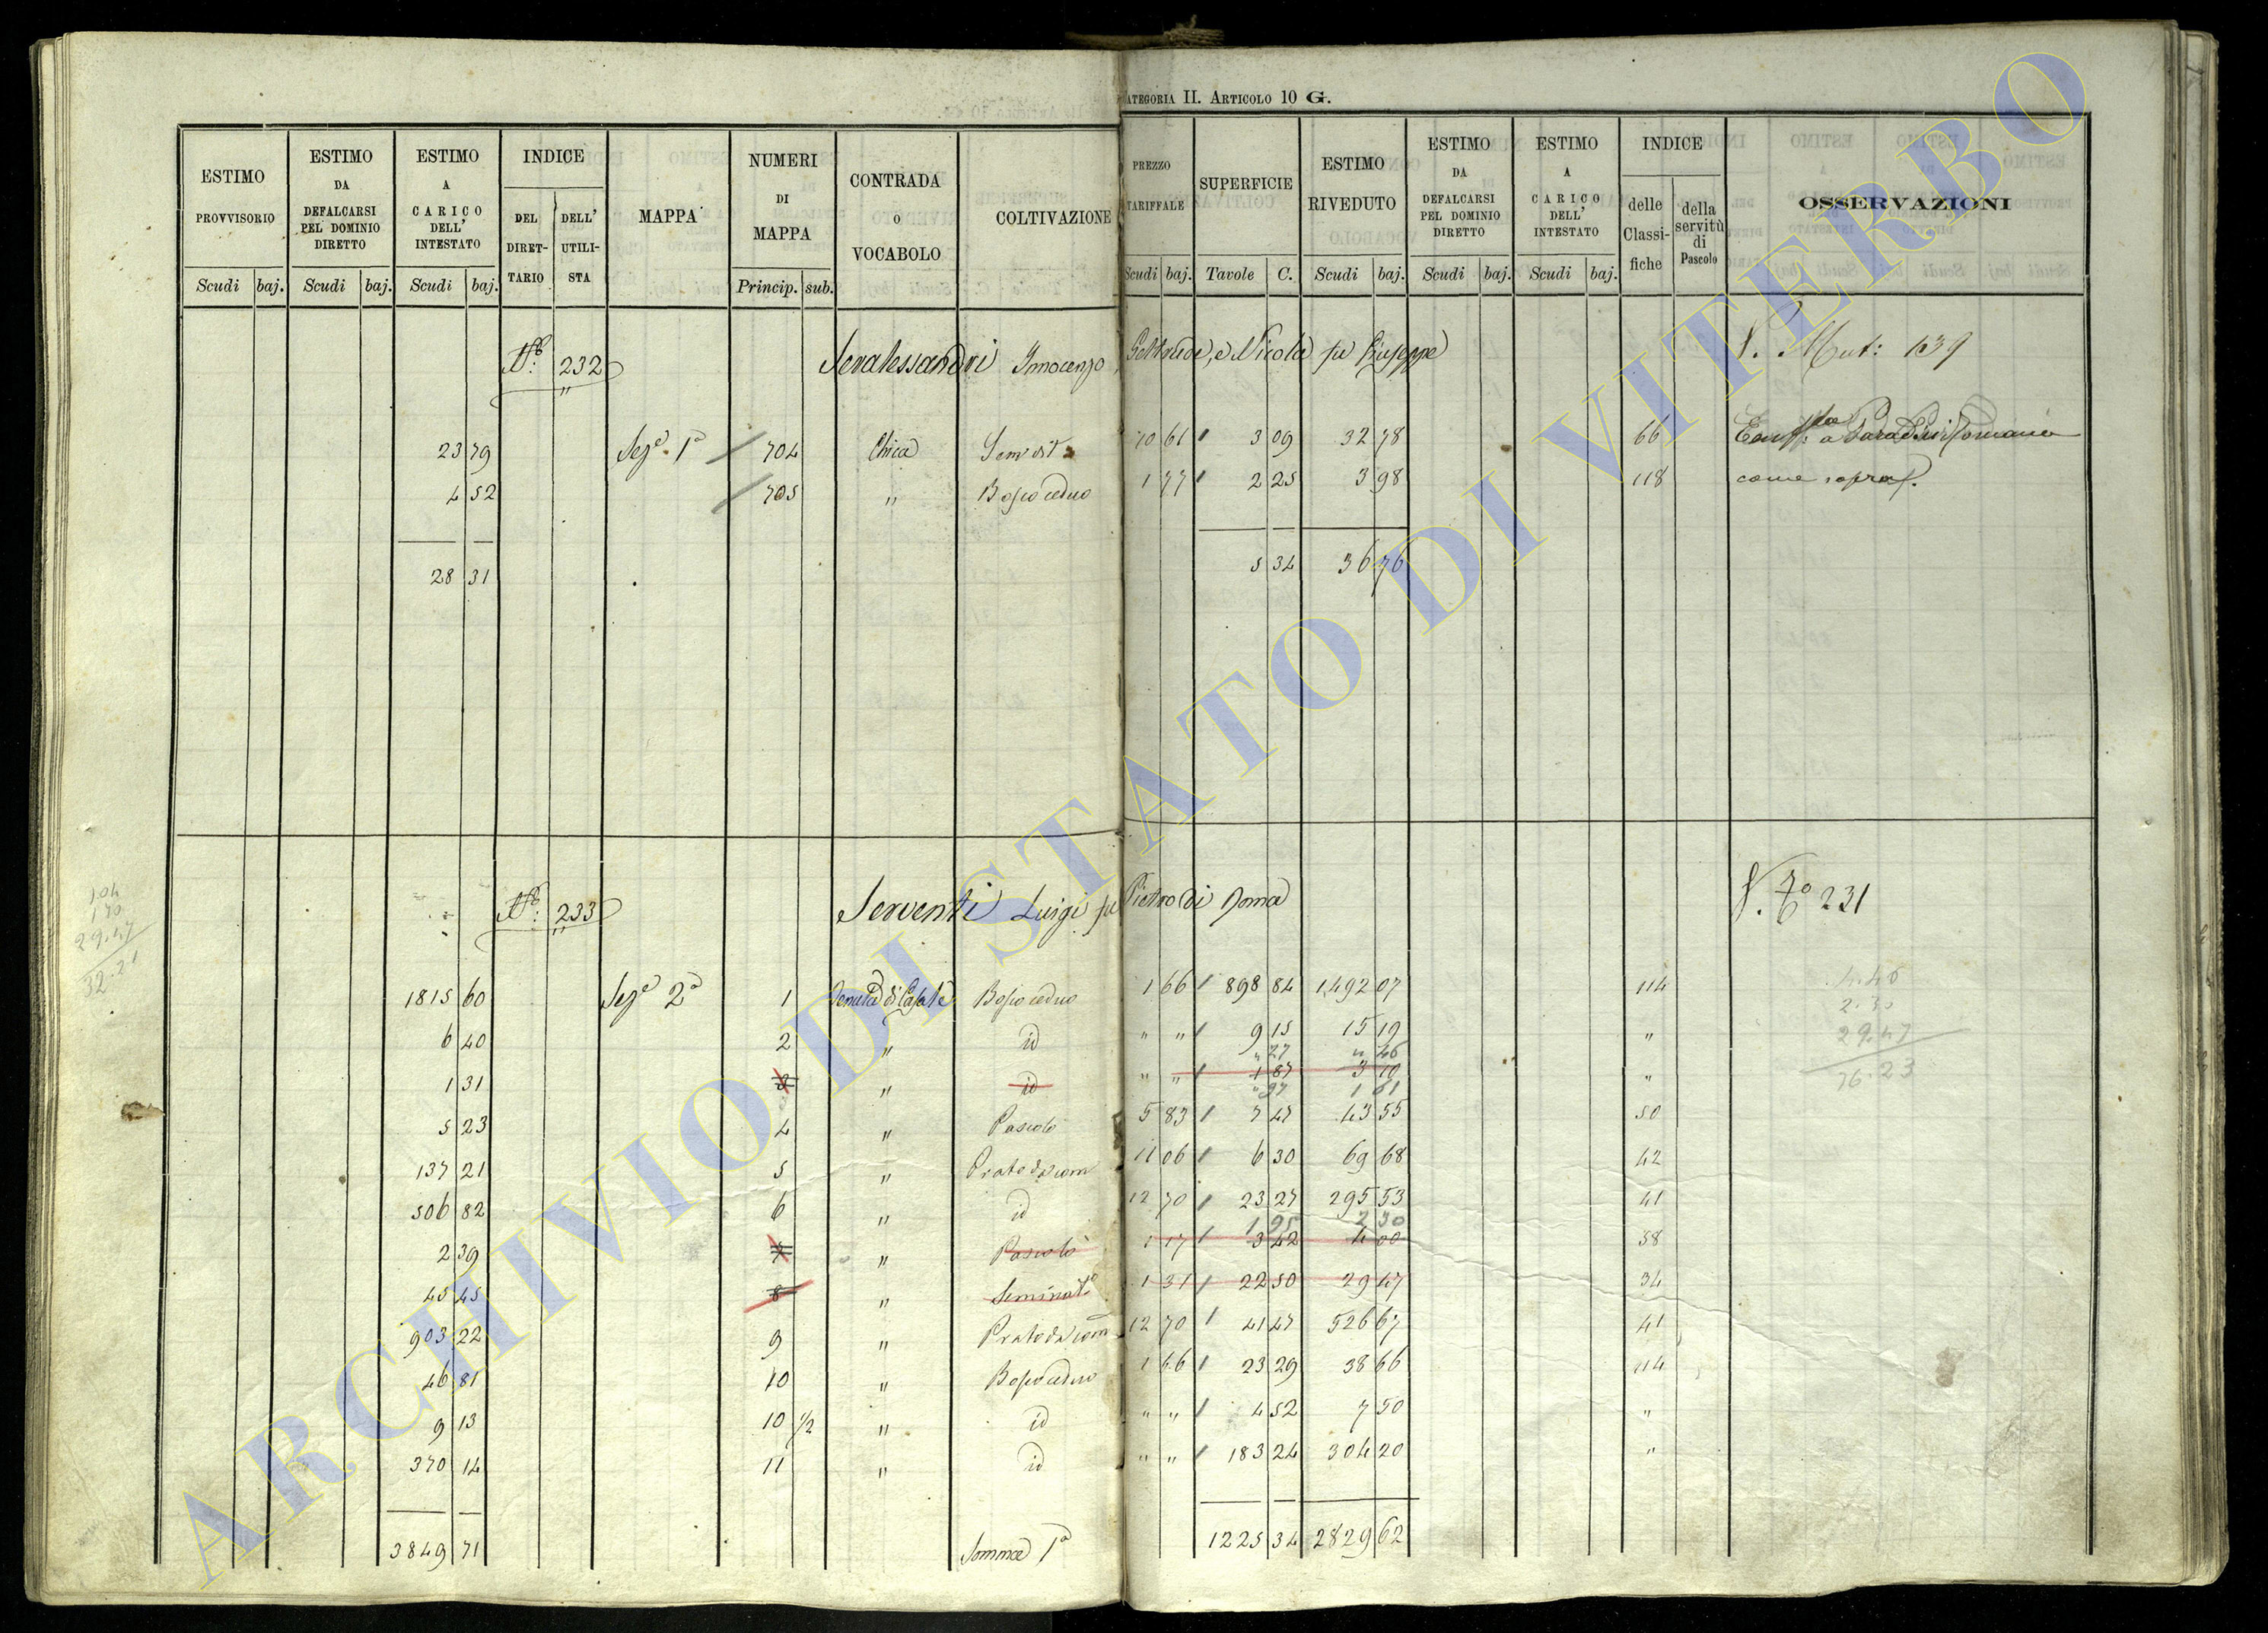 CATEGORIA II. ARTICOLO 10 G.
ESTIMO PROVVISORIO | ESTIMO DA DEFALCARSI PEL DOMINIO DIRETTO | ESTIMO A CARICO DELL' INTESTATO | INDICE | MAPPA | NUMERI DI MAPPA | CONTRADA O VOCABOLO | COLTIVAZIONE | PREZZO TARIFFALE | SUPERFICIE | ESTIMO RIVEDUTO | ESTIMO DA DEFALCARSI PEL DOMINIO DIRETTO | ESTIMO A CARICO DELL' INTESTATO | INDICE | OSSERVAZIONI
DEL DIRETTARIO | DELL' UTILISTA | delle Classifiche | della servitù di Pascolo
Scudi baj. | Scudi baj. | Scudi baj. | Princip. sub. | Scudi baj. | Tavole C. | Scudi baj. | Scudi baj. | Scudi baj.
N.° 232 Seralessandri Innocenzo Geltrude, e Nicola fu Giuseppe
23 79 Sez.e 1a 704 Chica Semvit.o 10 61 3 09 32 78 66
4 52 705 " Bosco ceduo 1 77 2 25 3 98 118 come sopra
28 31 5 34 36 76
N.° 233 Serventi Luigi fu Pietro di Roma 231
104
29.47
32.21
1815 60 Sez.e 2a 1 Tenuta di Casale Bosco ceduo 1 66 898 84 1492 07 114
6 40 2 " id " " 9 15 15 19 "
" 27 " 46
1 31 3 " id " " 1 87 3 10 "
" 97 1 61
5 23 4 " Pascolo 5 83 7 47 43 55 50
137 21 5 " Prato da vom 11 06 6 30 69 68 42
506 82 6 " id 12 70 23 27 295 53 41
1 95 2 30
2 39 7 " Pascolo 1 17 3 42 4 00 58
45 45 8 " Seminat.o 1 31 22 50 29 47 34
903 22 9 " Prato da vom 12 70 41 47 526 67 41
46 81 10 " Bosco ceduo 1 66 23 29 38 66 114
9 13 10 1/2 " id " " 4 52 7 50 "
370 14 11 " id " " 183 24 304 20 "
3849 71 Somma 1a 1225 34 2829 62
4.46
2.30
29.47
ARCHIVIO DI STATO DI VITERBO